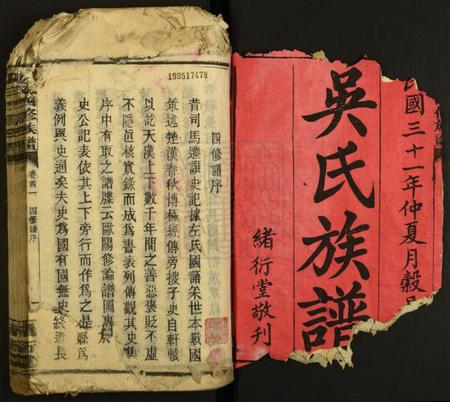 民國三十一年仲夏月穀旦
吳氏族譜
緒衍堂敬刊
199517479
四修譜序
昔司馬遷讀史記據左氏國語采世本戰國
策述楚漢春秋博極經傳旁搜子史自軒轅
以訖天漢上下數千年間之善惡褒貶不虛
不隱眞核實錄而成爲書表列傳觀其史集
序中有取之譜牒云歐陽修論譜圖專
史公記表依其上下旁行而作爲之
義例與史通矣夫史爲國有國無史終
修族譜
卷首一
四修譜序